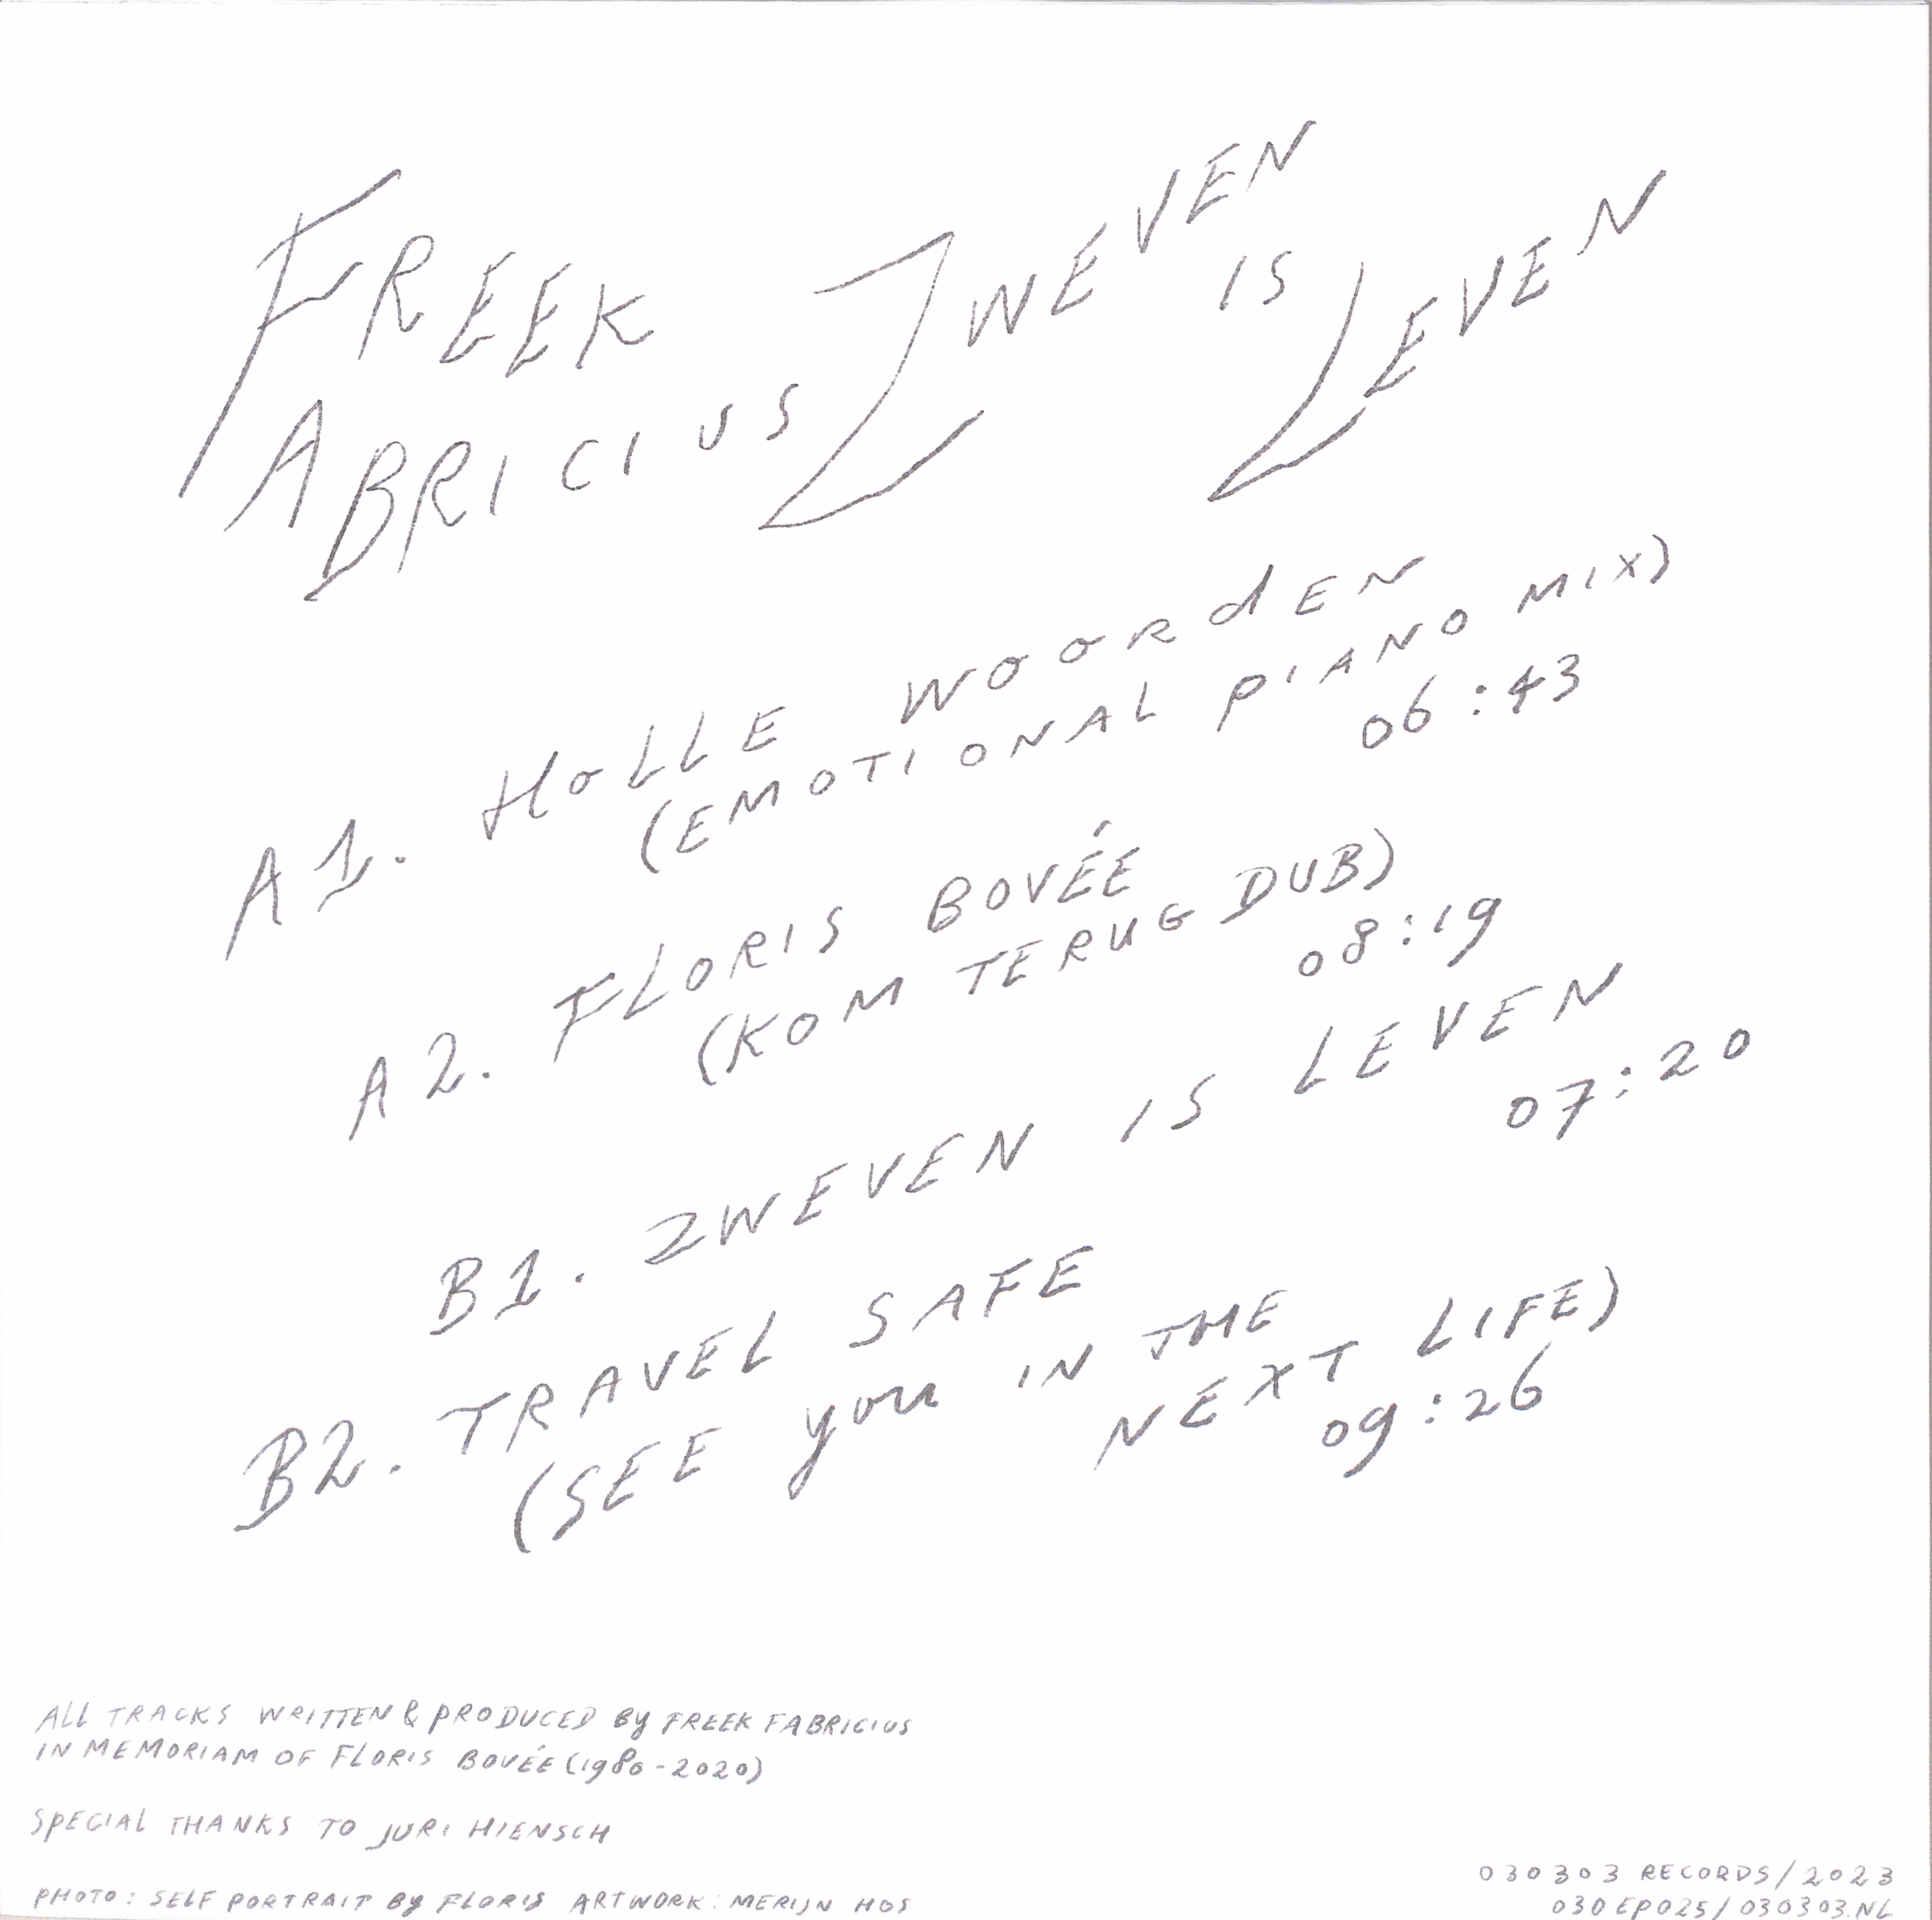 FREEK FABRICIUS
ZWEVEN IS LEVEN
A1. HOLLE WOORDEN
(EMOTIONAL PIANO MIX)
06:43
A2. FLORIS BOVÉE
(KOM TERUG DUB)
08:19
B1. ZWEVEN IS LEVEN
07:20
B2. TRAVEL SAFE
(SEE YOU IN THE
NEXT LIFE)
09:26
ALL TRACKS WRITTEN & PRODUCED BY FREEK FABRICIUS
IN MEMORIAM OF FLORIS BOVÉE (1980-2020)
SPECIAL THANKS TO JURI HIENSCH
PHOTO: SELF PORTRAIT BY FLORIS ARTWORK: MERIJN HOS
030303 RECORDS/2023
030EP025/030303.NL